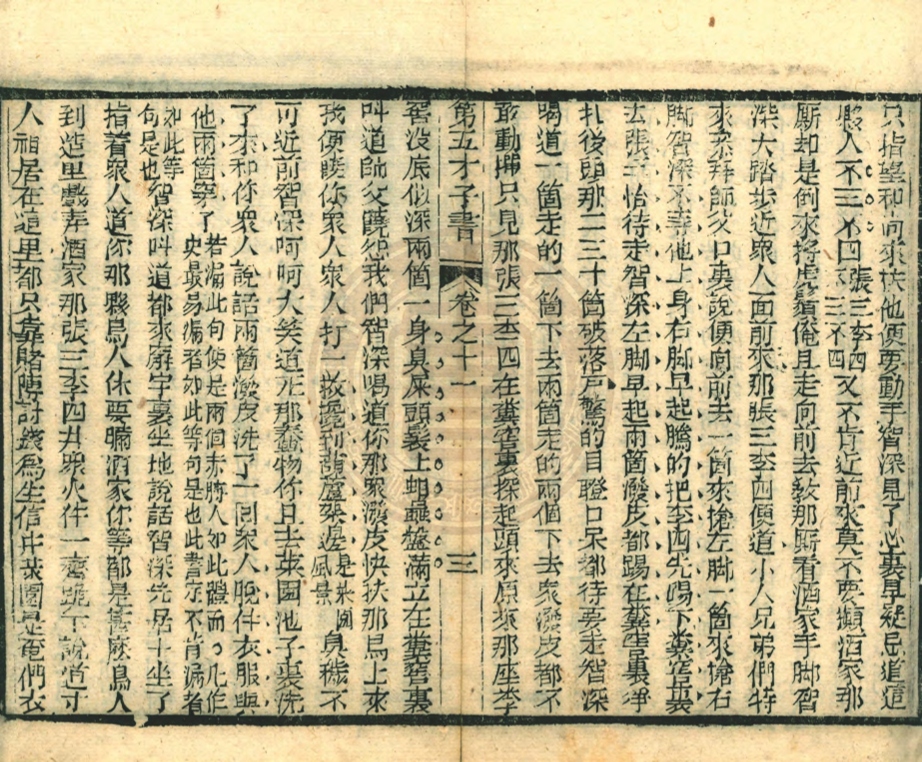 只指望和尚來扶他便要動手智深見了心裏早疑忌道這
夥人不三不四張三李四三不四又不肯近前來莫不要攧洒家那
厮却是倒來捋虎鬚俺且走向前去教那厮看洒家手脚智
深大踏步近衆人面前來那張三李四便道小人兄弟們特
來參拜師父口裏說便向前去一箇來搶左脚一箇來搶右
脚智深不等他上身右脚早起騰的把李四先踢下糞窖裏
去張三恰待走智深左脚早起兩箇潑皮都踢在糞窖裏掙
扎後頭那二三十箇破落户驚的目瞪口呆都待要走智深
喝道一箇走的一箇下去兩箇走的兩個下去衆潑皮都不
敢動撣只見那張三李四在糞窖裏探起頭來原來那座糞
第五才子書 卷之十一 三
窖没底似深兩箇一身臭屎頭髮上蛆蟲盤滿立在糞窖裏
叫道師父饒恕我們智深喝道你那衆潑皮快扶那鳥上來
我便饒你衆人衆人打一救攙到葫蘆架邊是菜園風景臭穢不
可近前智深呵呵大笑道兀那蠢物你且去菜園池子裏洗
了來和你衆人說話兩箇潑皮洗了一回衆人脫件衣服與
他兩箇穿了若漏此句便是兩個赤膊人如此體而〇凡作史最易漏者如此等句是也此書定不肯漏者
如此等句是也智深叫道都來廨宇裏坐地說話智深先居中坐了
指着衆人道你那夥鳥人休要瞞洒家你等都是甚麼鳥人
到這里戲弄洒家那張三李四并衆火伴一齊跪下說道小
人祖居在這里都只靠賭博討錢爲生這片菜園是俺們衣